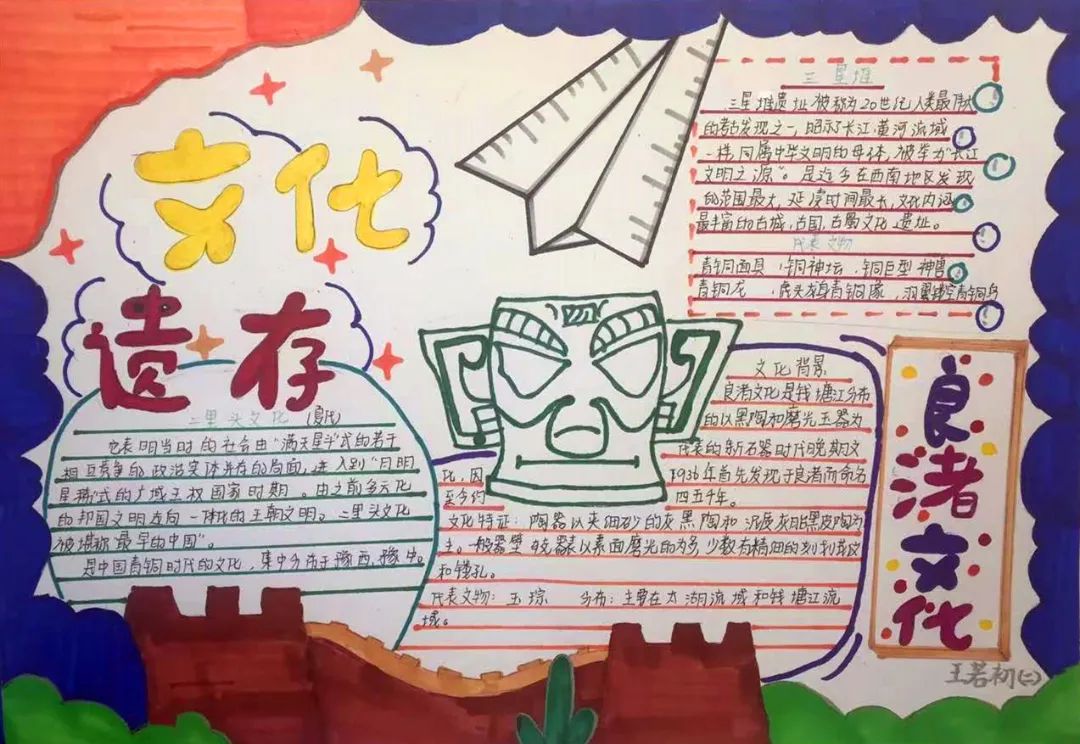 文化
遗存
三星堆
三星堆遗址被称为20世纪人类最伟大
的考古发现之一,昭示了长江黄河流域
一样,同属中华文明的母体,被誉为“长江
文明之源”。是迄今在西南地区发现
的范围最大,延续时间最长,文化内涵
最丰富的古城,古国,古蜀文化遗址。
代表文物
青铜面具、铜神坛、铜巨型神兽
青铜龙、虎头龙身青铜像、青铜鸟
二里头文化(夏代)
它表明当时的社会由“满天星斗”式的若干
相互竞争的政治实体并存的局面,进入到“月明
星稀”式的广域王权国家时期。由之前多元化
的邦国文明走向一体化的王朝文明。二里头文化
被堪称“最早的中国”。
是中国青铜时代的文化,集中分布于豫西、豫中。
文化背景
良渚文化是钱塘江分布
的以黑陶和磨光玉器为
代表的新石器时代晚期文
化,因1936年首先发现于良渚而命名
距今约四五千年。
文化特征:陶器以夹细砂的灰黑陶和泥质灰胎黑皮陶为
主。一般器壁较器表以素面磨光的为多,少数有精细的刻划花纹
和镂孔。
代表文物:玉琮 分布:主要在太湖流域和钱塘江流
域。
良渚文化
王若初(二)